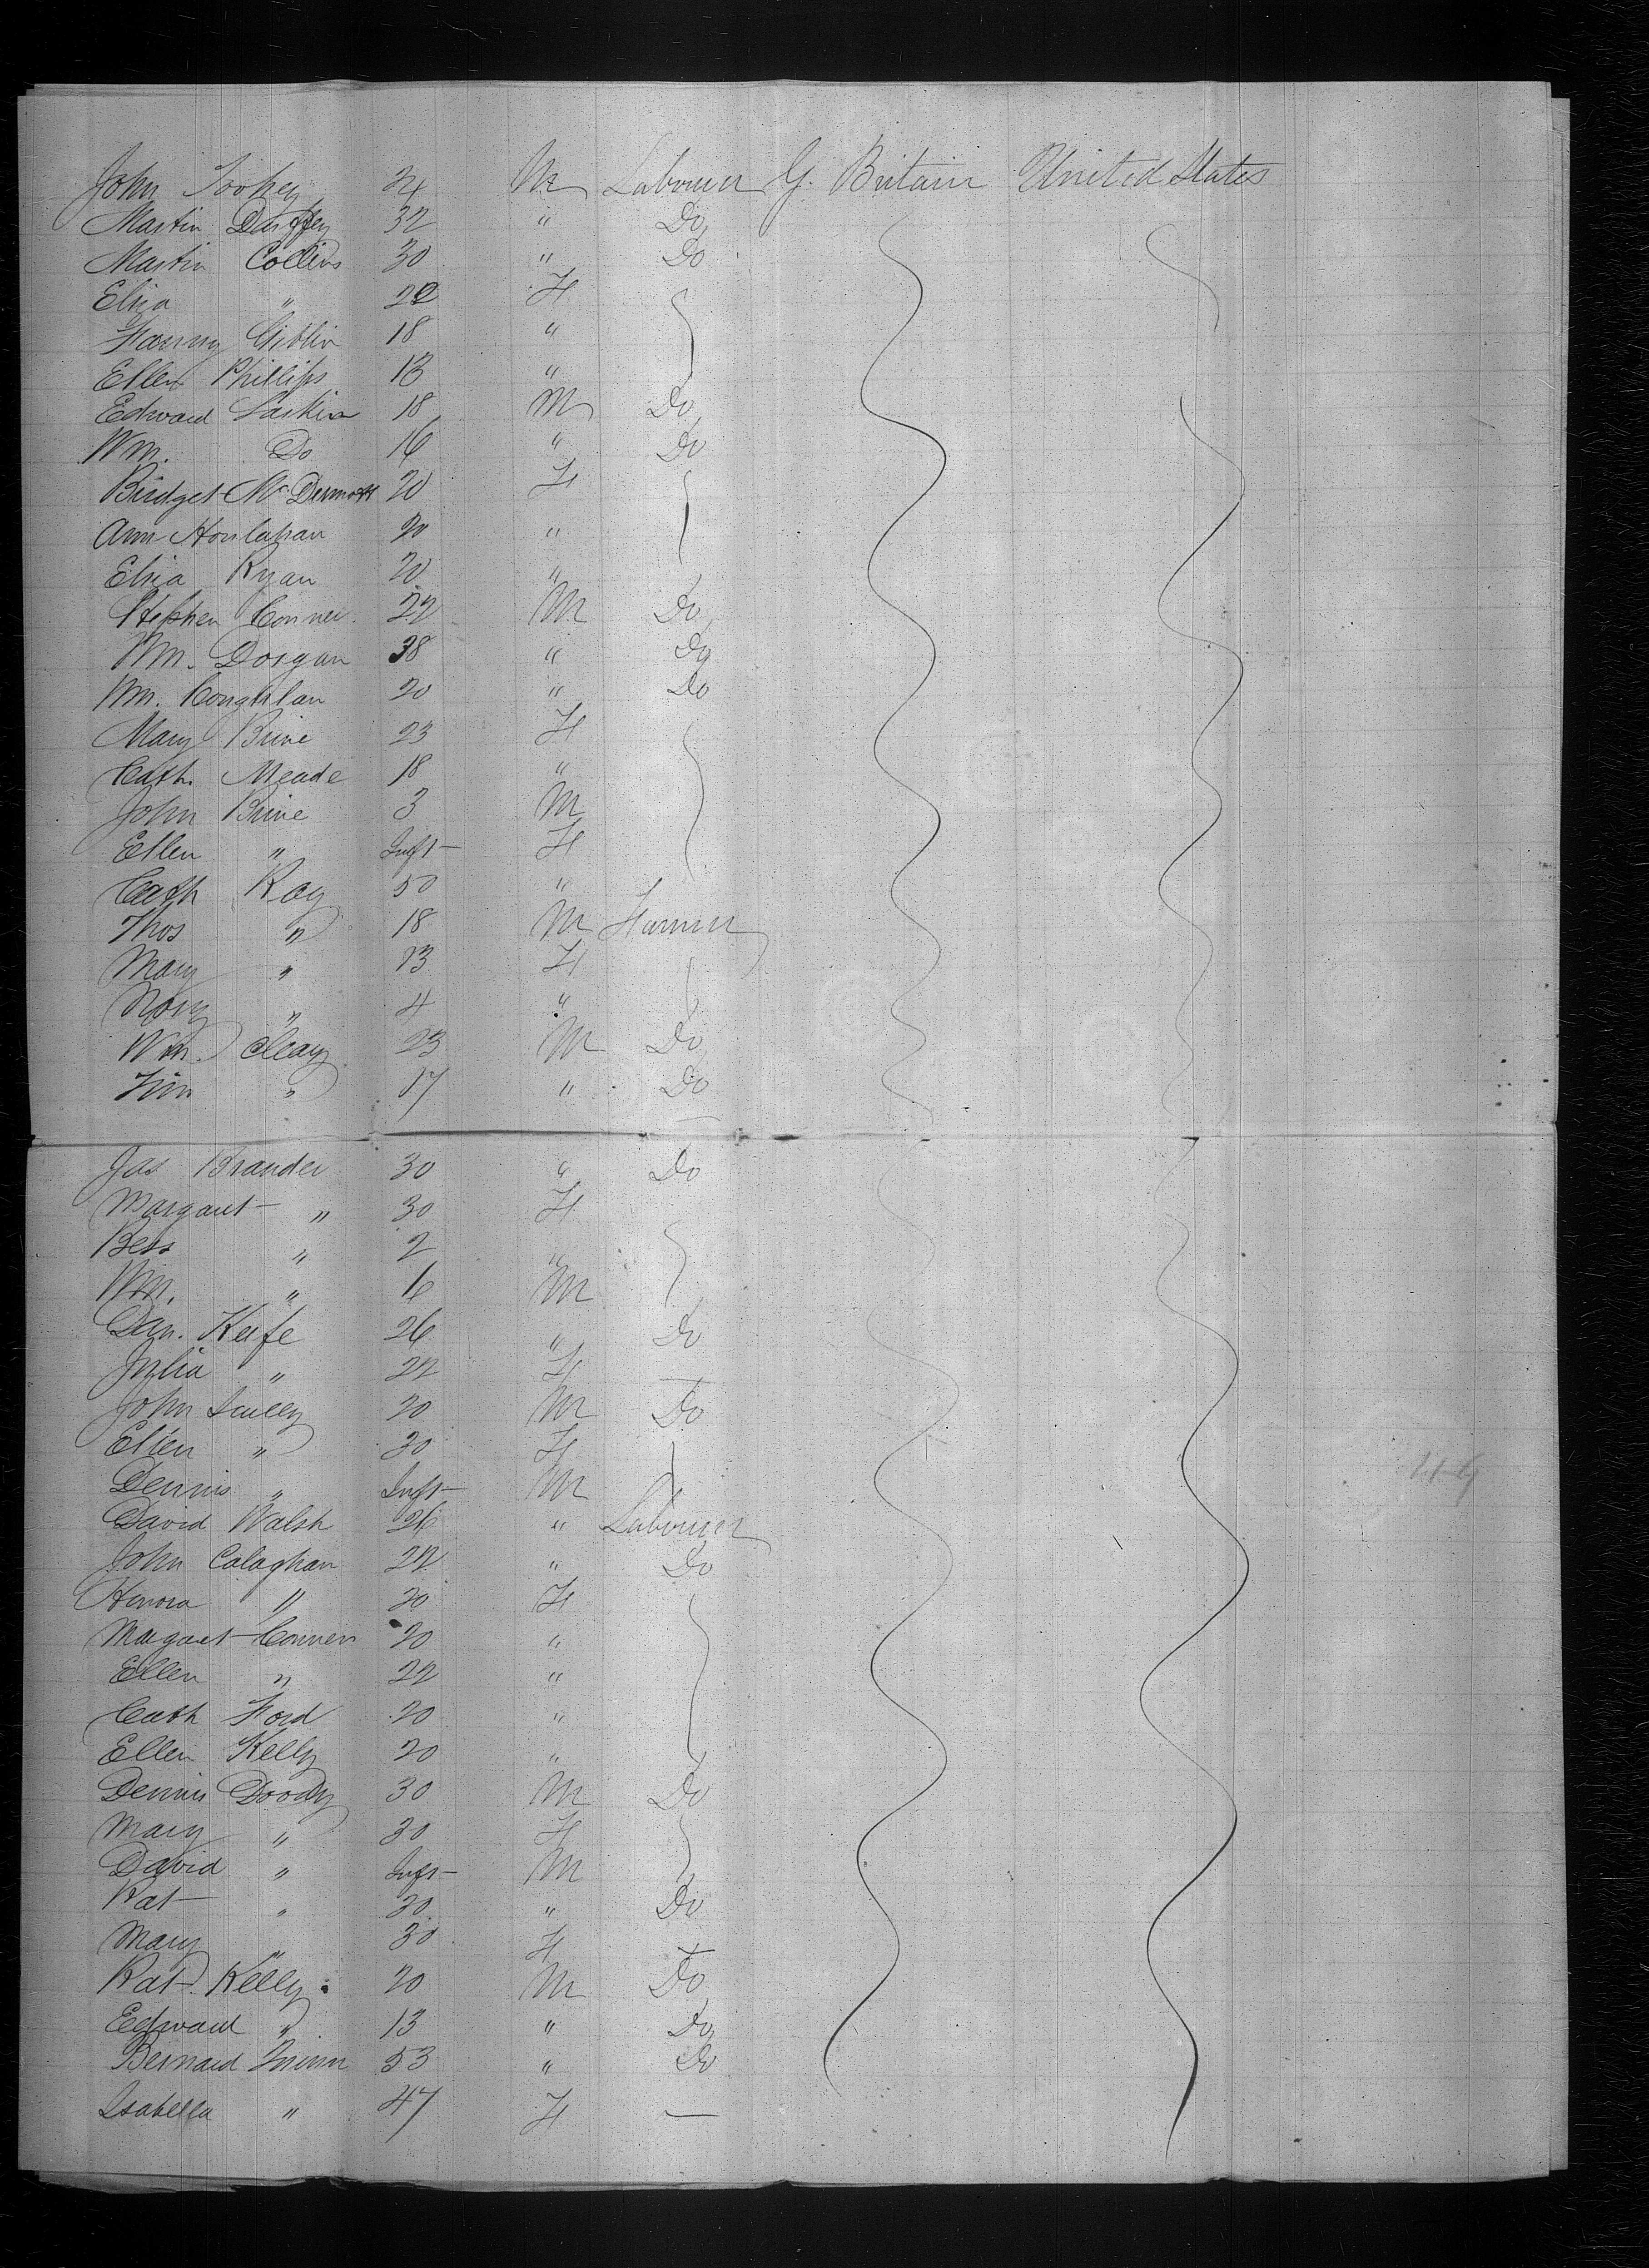 John Toohey 24 M Labourer G. Britain United States
Martin Duffey 32 " Do
Martin Collins 30 " Do
Eliza " 22 F
Fanny Giblin 18 "
Ellen Phillips 18 "
Edward Larkin 18 M Do
Wm. Do 16 " Do
Bridget McDermott 20 F
Ann Houlahan 20 "
Eliza Ryan 20 "
Stephen Conner 22 M Do
Wm. Dorgan 38 " Do
Wm. Coughlan 20 " Do
Mary Brine 23 F
Cath. Meade 18 "
John Brine 3 M
Ellen " Inft F
Cath Roy 50 "
Thos " 18 M Farmer
Mary " 13 F
Nory " 4 "
Wm. Cleary 23 M Do
Tim " 17 " Do
Jas Brander 30 " Do
Margaret " 30 F
Bess " 2 "
Wm. " 6 M
Dan. Keefe 26 " Do
Julia " 22 F
John Scully 20 M Do
Ellen " 30 F
Dennis " Inft M
David Walsh 26 " Labourer
John Calaghan 22 " Do
Honora " 20 F
Margaret Conners 20 "
Ellen " 22 "
Cath Ford 20 "
Ellen Kelly 20 "
Dennis Doody 30 M Do
Mary " 30 F
David " Inft M
Pat " 30 " Do
Mary " 30 F
Pat. Kelly 20 M Do
Edward " 13 " Do
Bernard 53 " Do
Isabella " 47 F —